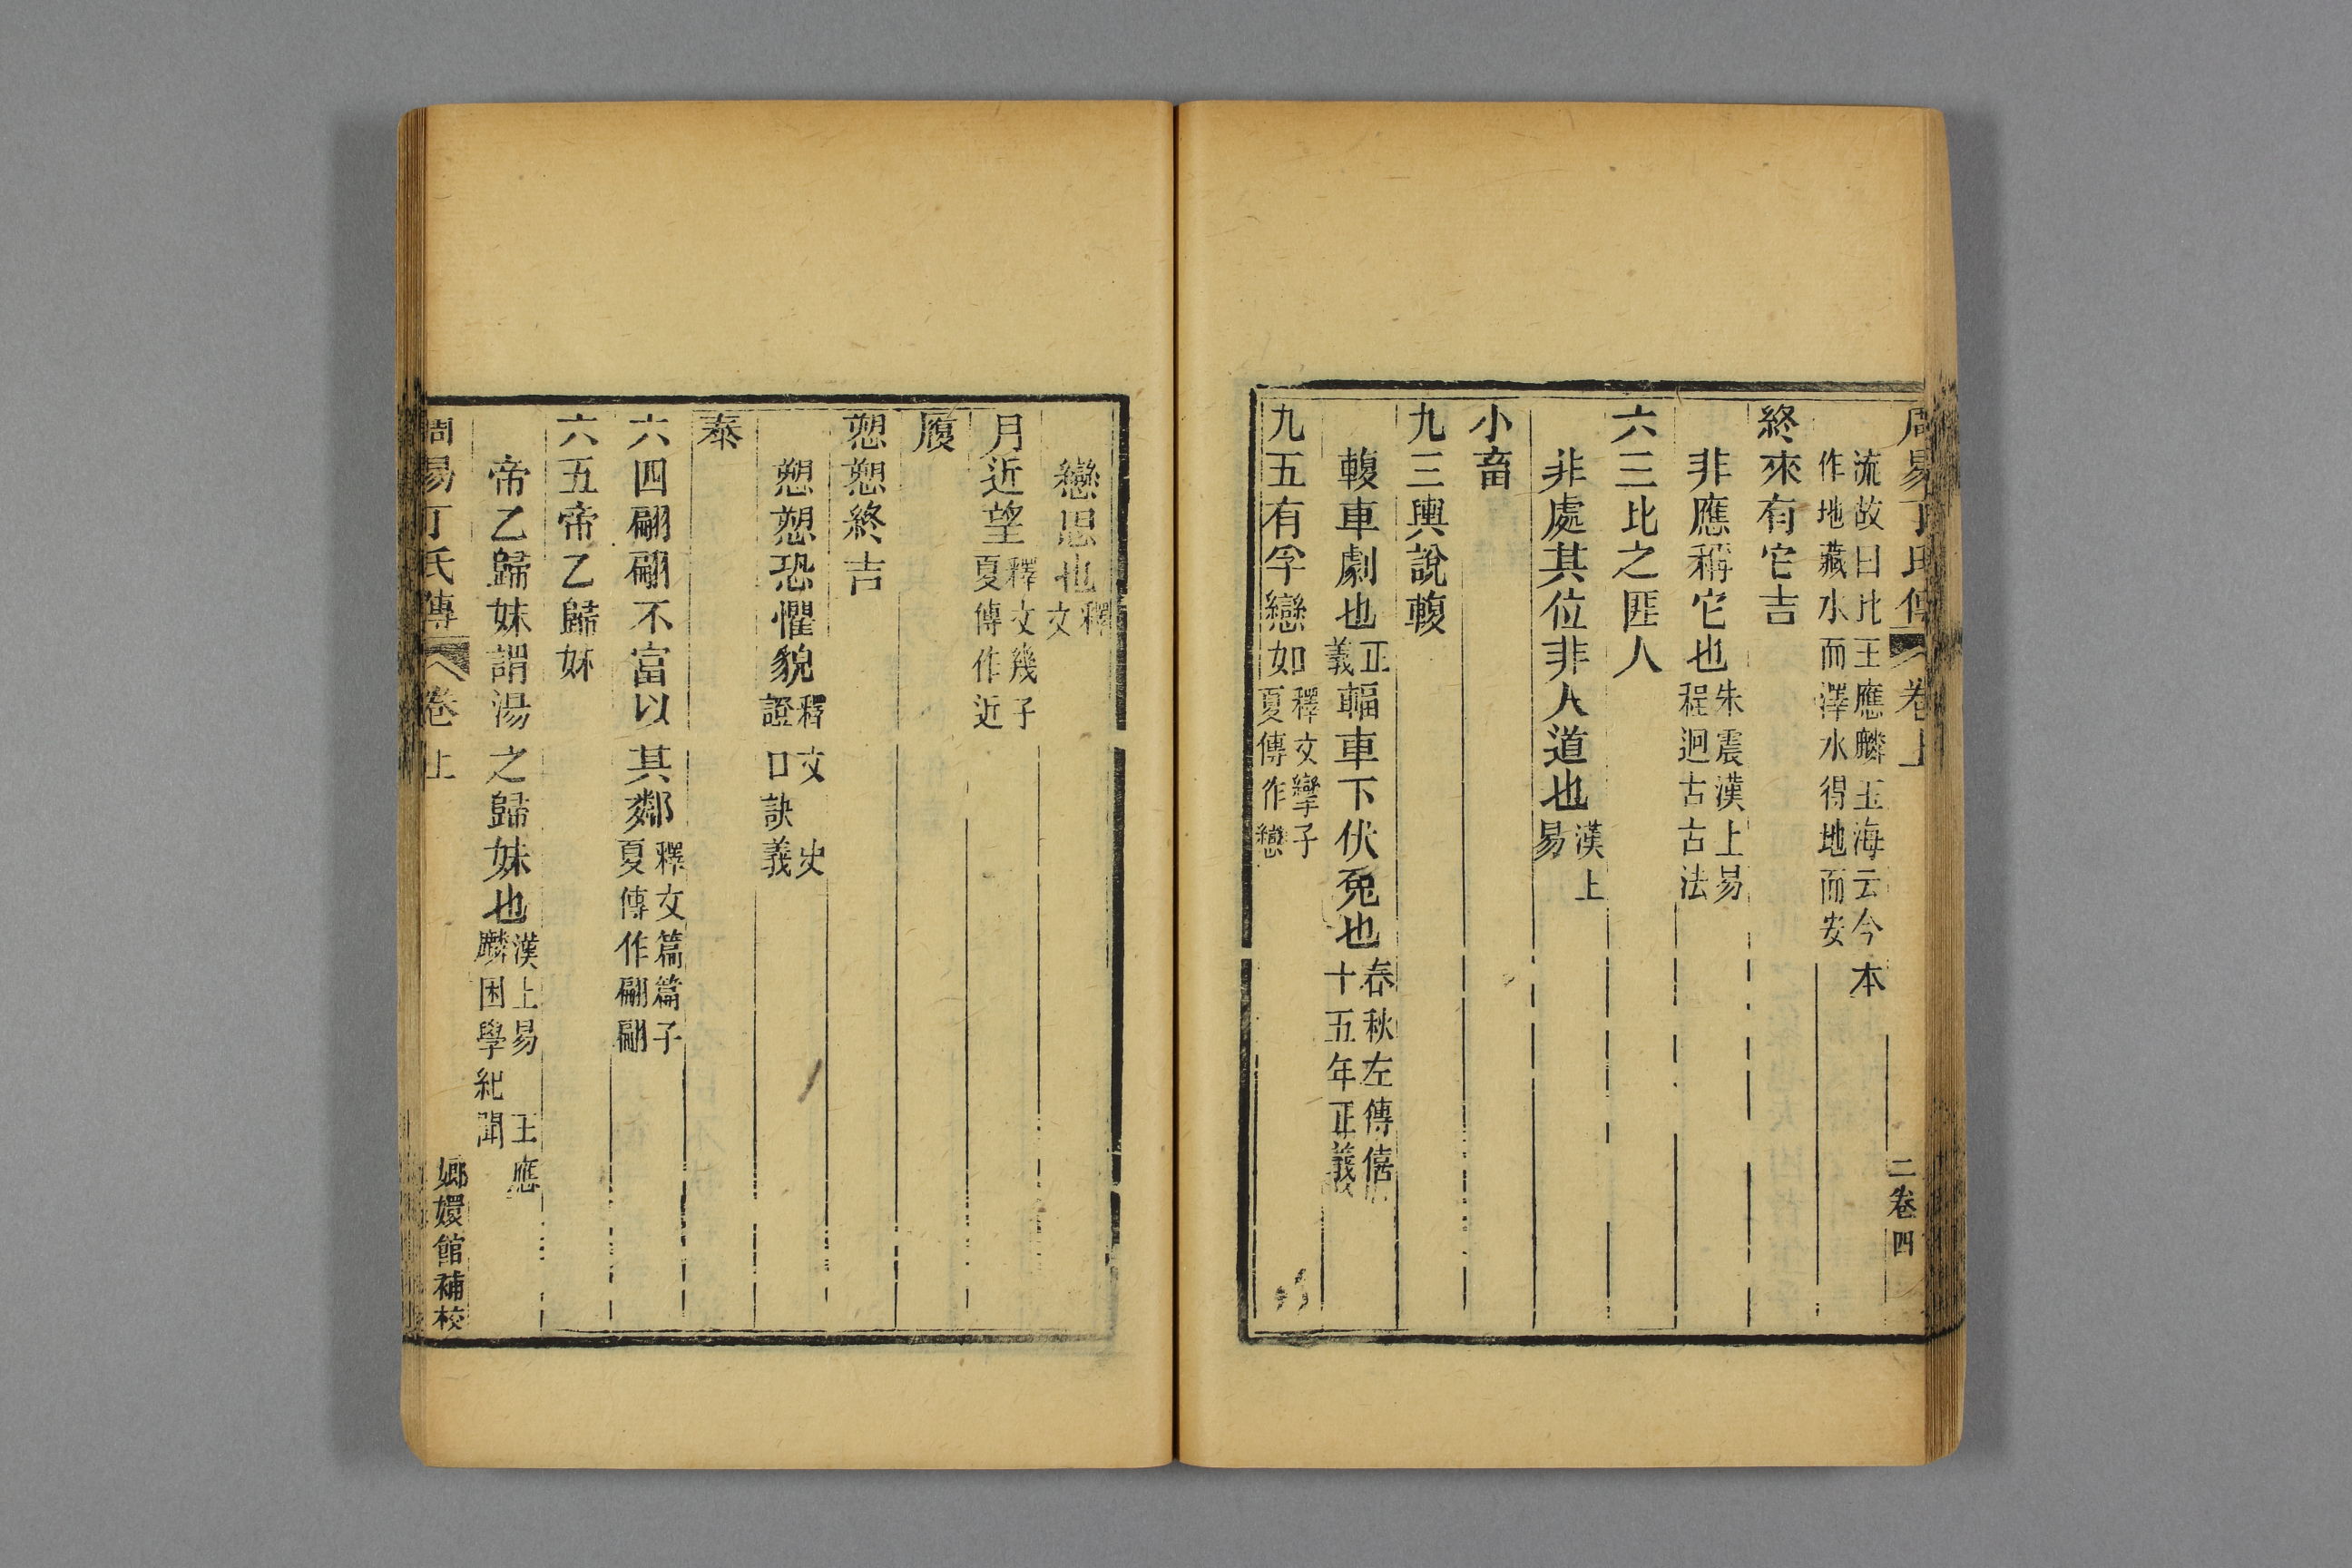 周易丁氏傳 卷上 二卷四
流故曰比王應麟玉海云今本
作地藏水而澤水得地而安
終來有它吉
非應稱它也朱震漢上易程迥古古法
六三比之匪人
非處其位非人道也漢上易
小畜
九三輿說輹
輹車劇也正義輻車下伏兔也春秋左傳僖十五年正義
九五有孚戀如釋文攣子夏傳作戀
戀思也釋文
月近望釋文幾子夏傳作近
履
愬愬終吉
愬愬恐懼貌釋文 史證口訣義
泰
六四翩翩不富以其鄰釋文篇篇子夏傳作翩翩
六五帝乙歸妹
帝乙歸妹謂湯之歸妹也漢上易 王應麟困學紀聞
周易丁氏傳 卷上 嫏嬛館補校